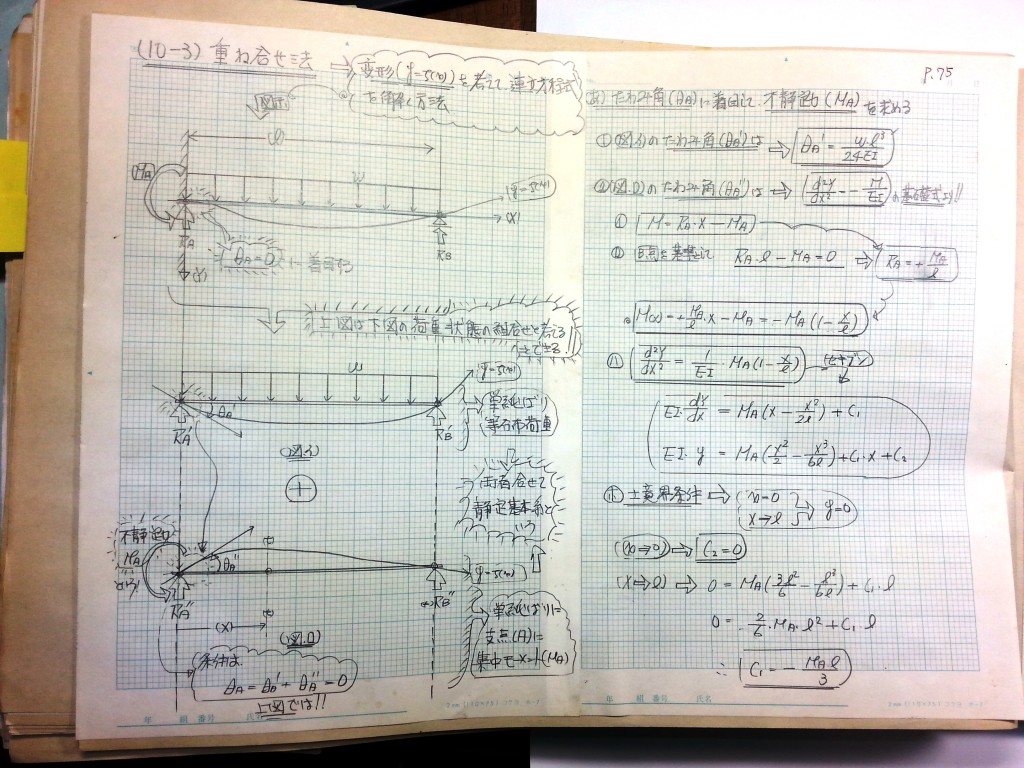 (10-3) 重ね合せ法 → 変形(y-5(x))を考えて、連立方程式
を解く方法
M_A
l
w
y-5(x)
(x)
R_A
θ_A=0 に着目する
R_B
(y)
上図は下図の荷重状態の組合せと考える
w
y-5(x)
θ_A'
R_A'
R_B'
単純ばり
等分布荷重
+
両者合せて
静定基本系と
いう
不静定力
M_A
θ_A''
y-5(x)
R_A''
R_B''
(x)
単純ばりに
支点(A)に
集中モーメント(M_A)
条件は
θ_A = θ_A' + θ_A'' = 0
上図では!!
年 組 番号 氏名
P.75
たわみ角(θ_A)に着目して、不静定力(M_A)を求める
① (図.イ)のたわみ角(θ_A')は ⇒ θ_A' = w・l³/24EI
② (図.ロ)のたわみ角(θ_A'')は ⇒ d²y/dx² = -M/EI の基礎式より!!
M = R_A・x - M_A
B点を基準にして R_A・l - M_A = 0 ⇒ R_A = + M_A/l
M(x) = + M_A/l・x - M_A = - M_A(1 - x/l)
d²y/dx² = 1/EI・M_A(1 - x/l)
EI・dy/dx = M_A(x - x²/2l) + C₁
EI・y = M_A(x²/2 - x³/6l) + C₁・x + C₂
境界条件 ⇒ x=0
x→l
y=0
(x→0) ⇒ C₂=0
(x→l) ⇒ 0 = M_A(3l²/6 - l³/6l) + C₁・l
0 = - 2/6・M_A・l² + C₁ l
∴ C₁ = - M_A l/3
年 組 番号 氏名